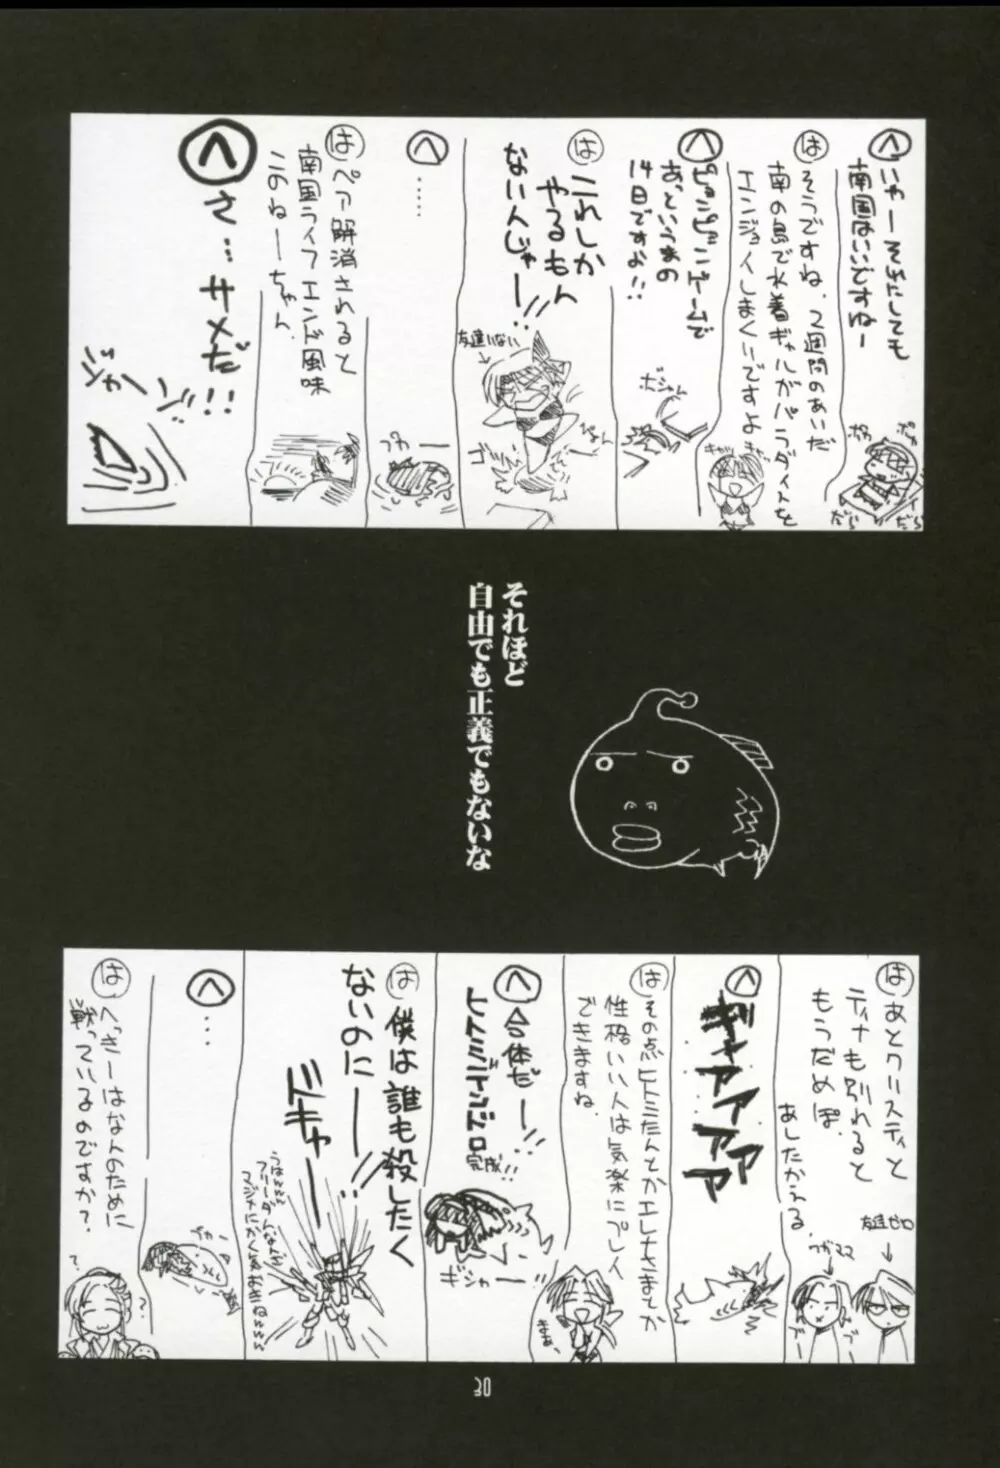 へ いやーそれにしても
南国はいいですねー
ポカ
ポカ
だら
だら
は そうですね、2週間のあいだ
南の島で水着ギャルがパラダイスを
エンジョイしまくりですよ
キャッ
へ ピョンピョンゲームで
あっというまの
14日ですよ!!
ボシャーン
は これしか
やるもん
ないんじゃー!!
友達いない
へ ……
プカー
は ペア解消されると
南国ライフエンド風味
このねーちゃん
へ さ…サメだ!!
ジャーン
それほど
自由でも正義でもないな
は あとクリスティと
ティナも別れると
もうだめぽ。
あしたかえる。
友達ゼロ
ワガママ
へ ギャアアアアア
は その点ヒトミたんとかエレナさまとか
性格いい人は気楽にプレイ
できますね。
まあ、
へ 合体だー!!
ヒトミディンドロ
完成!!
ギシャー!!
は 僕は誰も殺したく
ないのにー!!
ドギャーー
うはwwww
フリーダムなんか
マジでにかく気がきねwwww
へ …
プカー
は へっきーはなんのために
戦っているのですか?
?
30